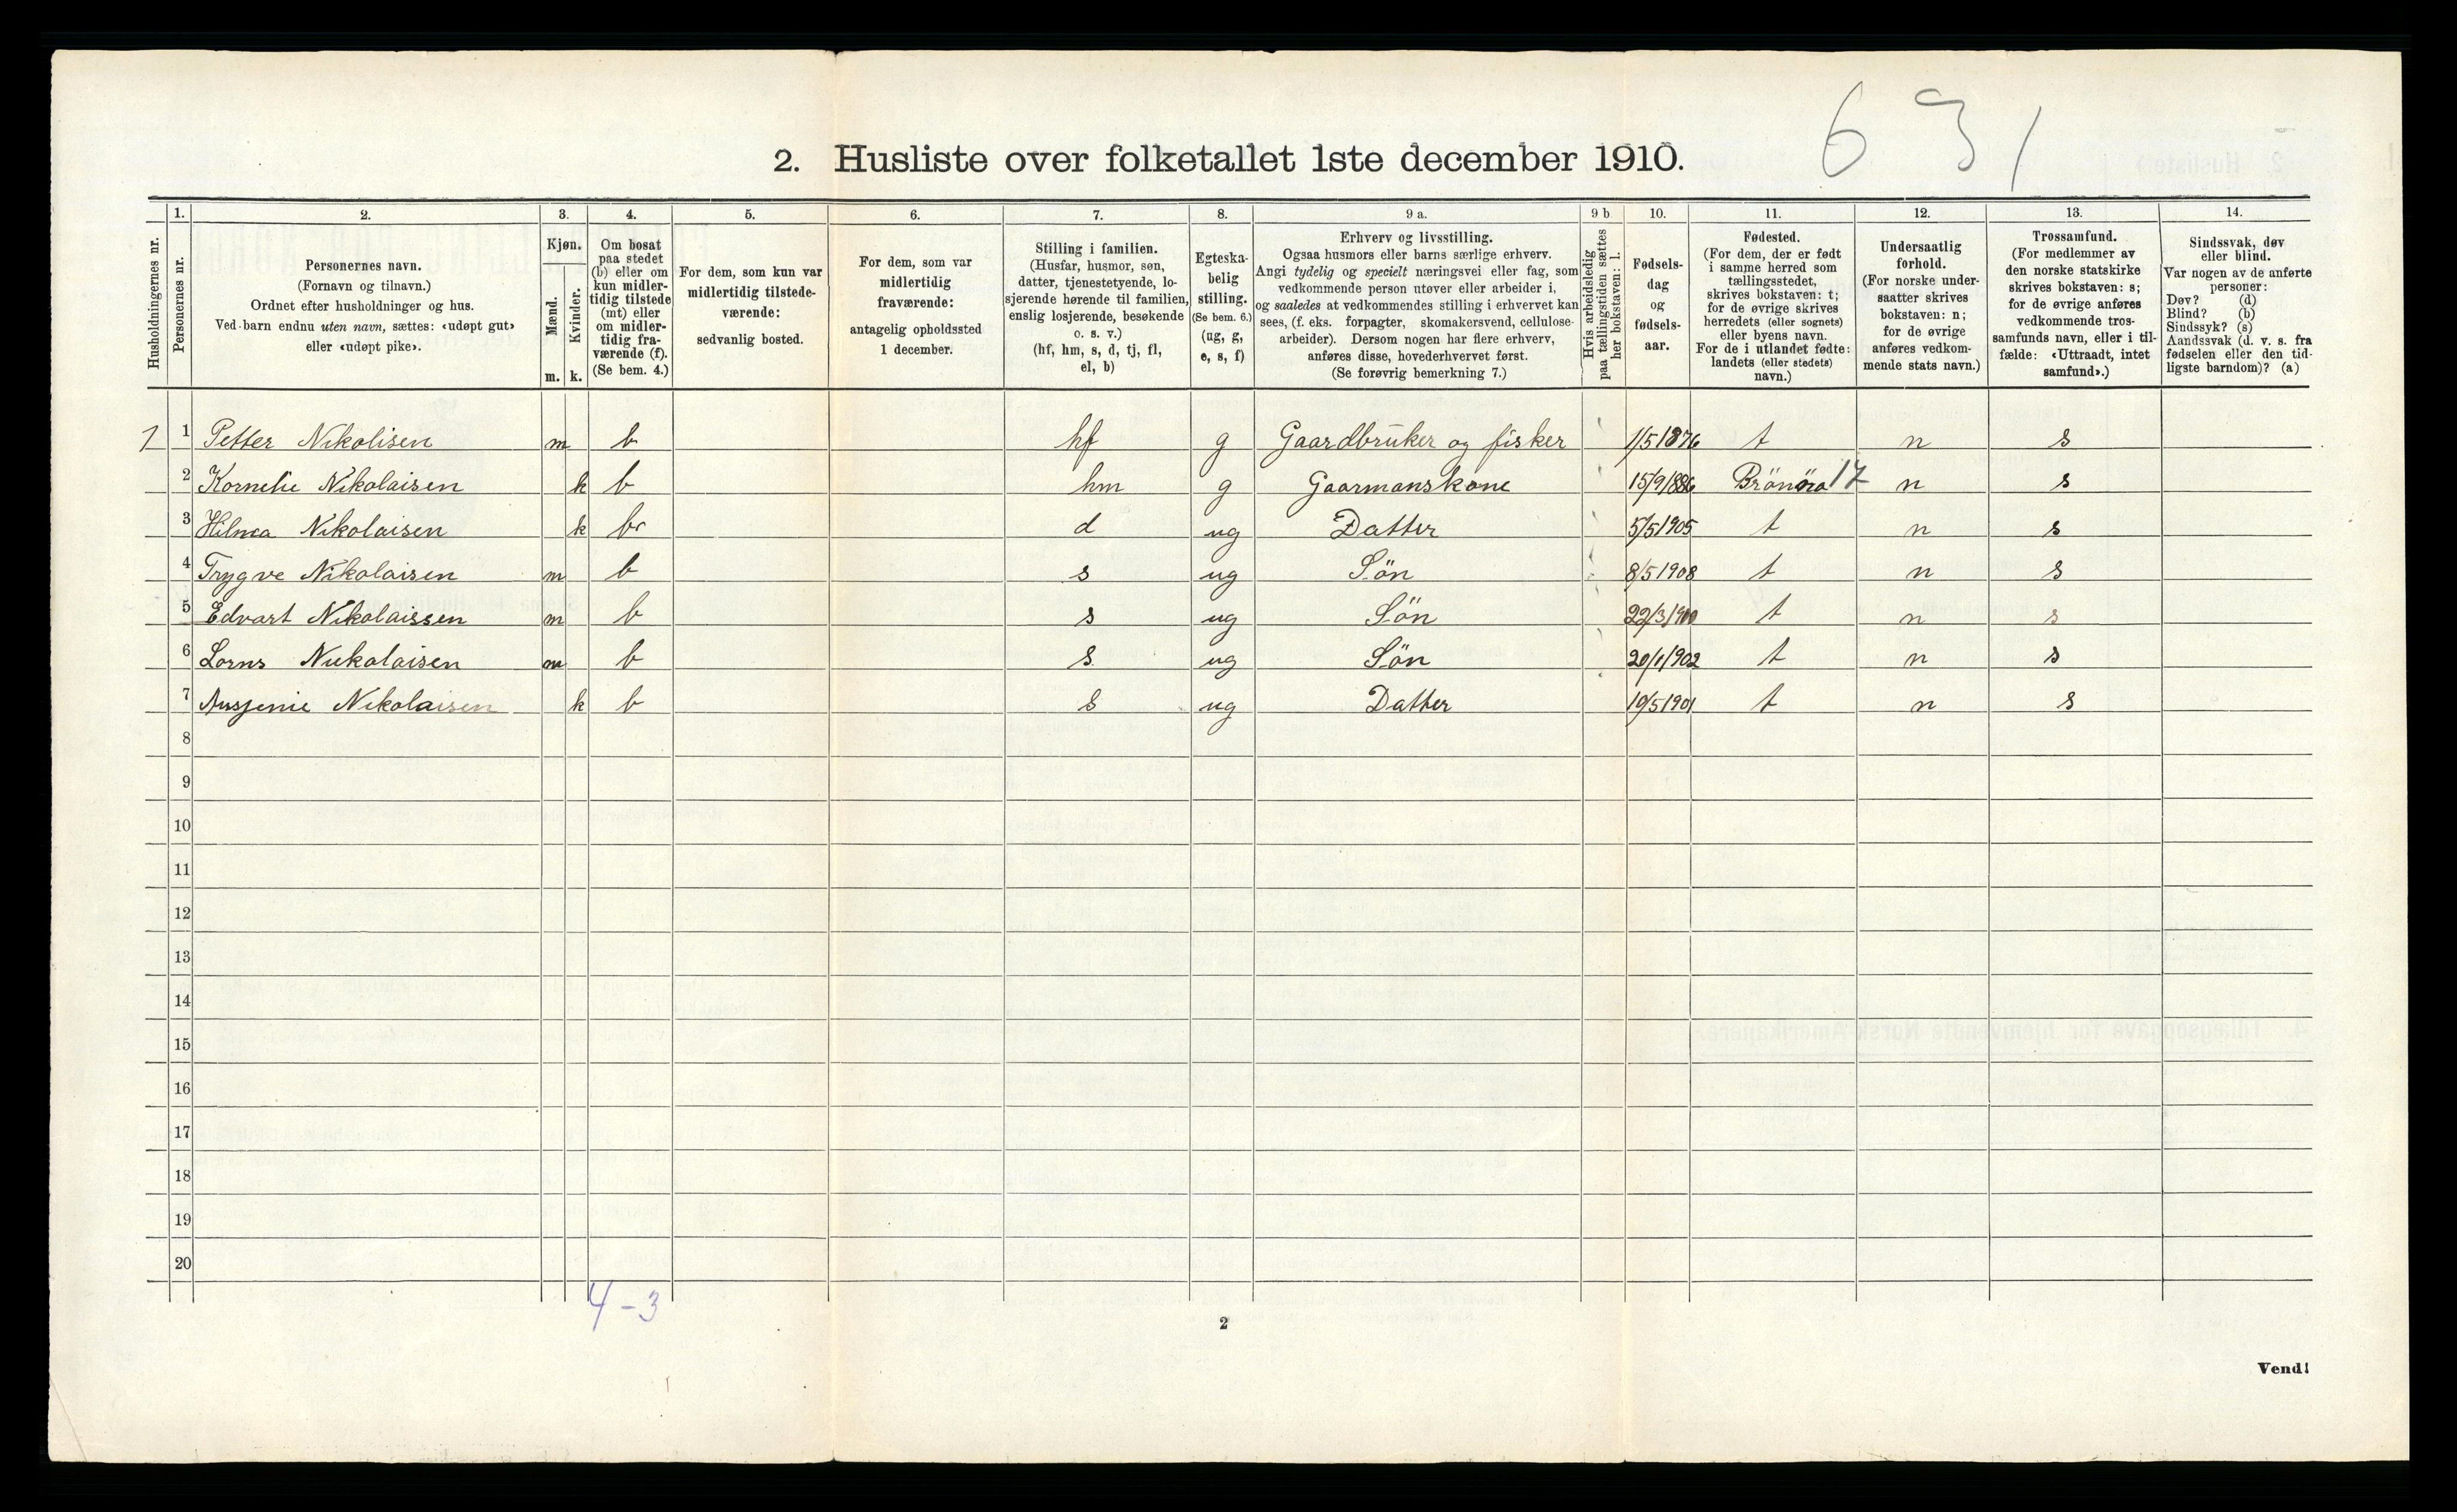 6 3 1
2. Husliste over folketallet 1ste december 1910.
Husholdningernes nr.
1.
Personernes nr.
2.
Personernes navn.
(Fornavn og tilnavn.)
Ordnet efter husholdninger og hus.
Ved barn endnu uten navn, sættes: «udøpt gut»
eller «udøpt pike».
3.
Kjøn.
Mænd.
Kvinder.
m. k.
4.
Om bosat
paa stedet
(b) eller om
kun midler-
tidig tilstede
(mt) eller
om midler-
tidig fra-
værende (f).
(Se bem. 4.)
5.
For dem, som kun var
midlertidig tilstede-
værende:
sedvanlig bosted.
6.
For dem, som var
midlertidig
fraværende:
antagelig opholdssted
1 december.
7.
Stilling i familien.
(Husfar, husmor, søn,
datter, tjenestetyende, lo-
sjerende hørende til familien,
enslig losjerende, besøkende
o. s. v.)
(hf, hm, s, d, tj, fl,
el, b)
8.
Egteska-
belig
stilling.
(Se bem. 6.)
(ug, g,
e, s, f)
9 a.
Erhverv og livsstilling.
Ogsaa husmors eller barns særlige erhverv.
Angi tydelig og specielt næringsvei eller fag, som
vedkommende person utøver eller arbeider i,
og saaledes at vedkommendes stilling i erhvervet kan
sees, (f. eks. forpagter, skomakersvend, cellulose-
arbeider). Dersom nogen har flere erhverv,
anføres disse, hovederhvervet først.
(Se forøvrig bemerkning 7.)
9 b
Hvis arbeidsledig
paa tællingstiden sættes
her bokstaven: l.
10.
Fødsels-
dag
og
fødsels-
aar.
11.
Fødested.
(For dem, der er født
i samme herred som
tællingsstedet,
skrives bokstaven: t;
for de øvrige skrives
herredets (eller sognets)
eller byens navn.
For de i utlandet fødte:
landets (eller stedets)
navn.)
12.
Undersaatlig
forhold.
(For norske under-
saatter skrives
bokstaven: n;
for de øvrige
anføres vedkom-
mende stats navn.)
13.
Trossamfund.
(For medlemmer av
den norske statskirke
skrives bokstaven: s;
for de øvrige anføres
vedkommende tros-
samfunds navn, eller i til-
fælde: «Uttraadt, intet
samfund».)
14.
Sindssvak, døv
eller blind.
Var nogen av de anførte
personer:
Døv? (d)
Blind? (b)
Sindssyk? (s)
Aandssvak (d. v. s. fra
fødselen eller den tid-
ligste barndom)? (a)
1 1 Petter Nikolisen m b hf g Gaardbruker og fisker 1/5 1876 t n s
2 Kornelie Nikolaisen k b hm g Gaarmanskone 15/9 1886 Brönnö 17 n s
3 Hilma Nikolaisen k b d ug Datter 5/5 1905 t n s
4 Trygve Nikolaisen m b s ug Sön 8/5 1908 t n s
5 Edvart Nikolaissen m b s ug Sön 22/3 1910 t n s
6 Lorns Nikolaisen m b s ug Sön 20/1 1902 t n s
7 Nikolaisen k b s ug Datter 19/5 1901 t n s
8
9
10
11
12
13
14
15
16
17
18
19
20
4-3
2
Vend!